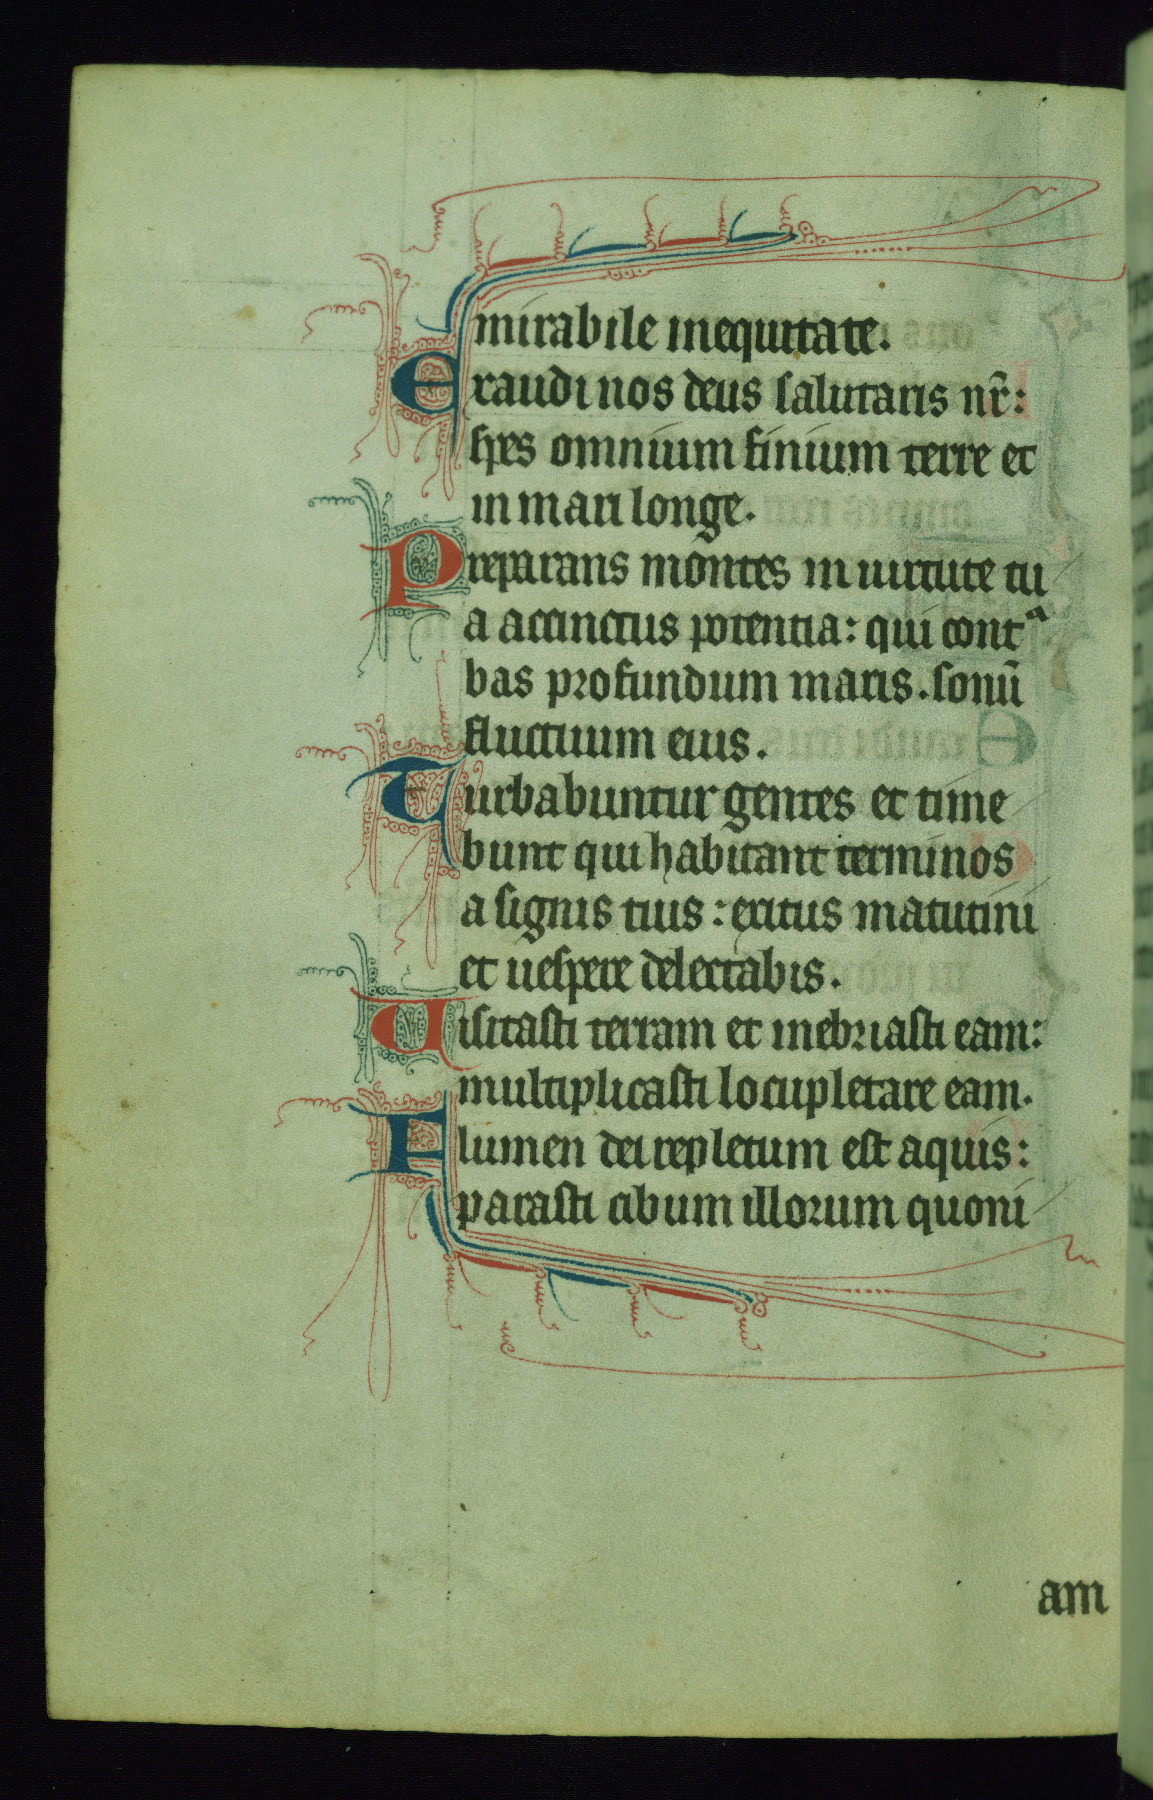 mirabile in equitate.
Exaudi nos deus salutaris nr̄:
spes omnium finium terre et
in mari longe.
Preparans montes in uirtute tu
a accinctus potentia: qui contᵃ
bas profundum maris. sonū
fluctuum eius.
Turbabuntur gentes et time
bunt qui habitant terminos
a signis tuis: exitus matutini
et uespere delectabis.
Uisitasti terram et inebriasti eam:
multiplicasti locupletare eam.
Flumen dei repletum est aquis:
parasti cibum illorum quoni
am